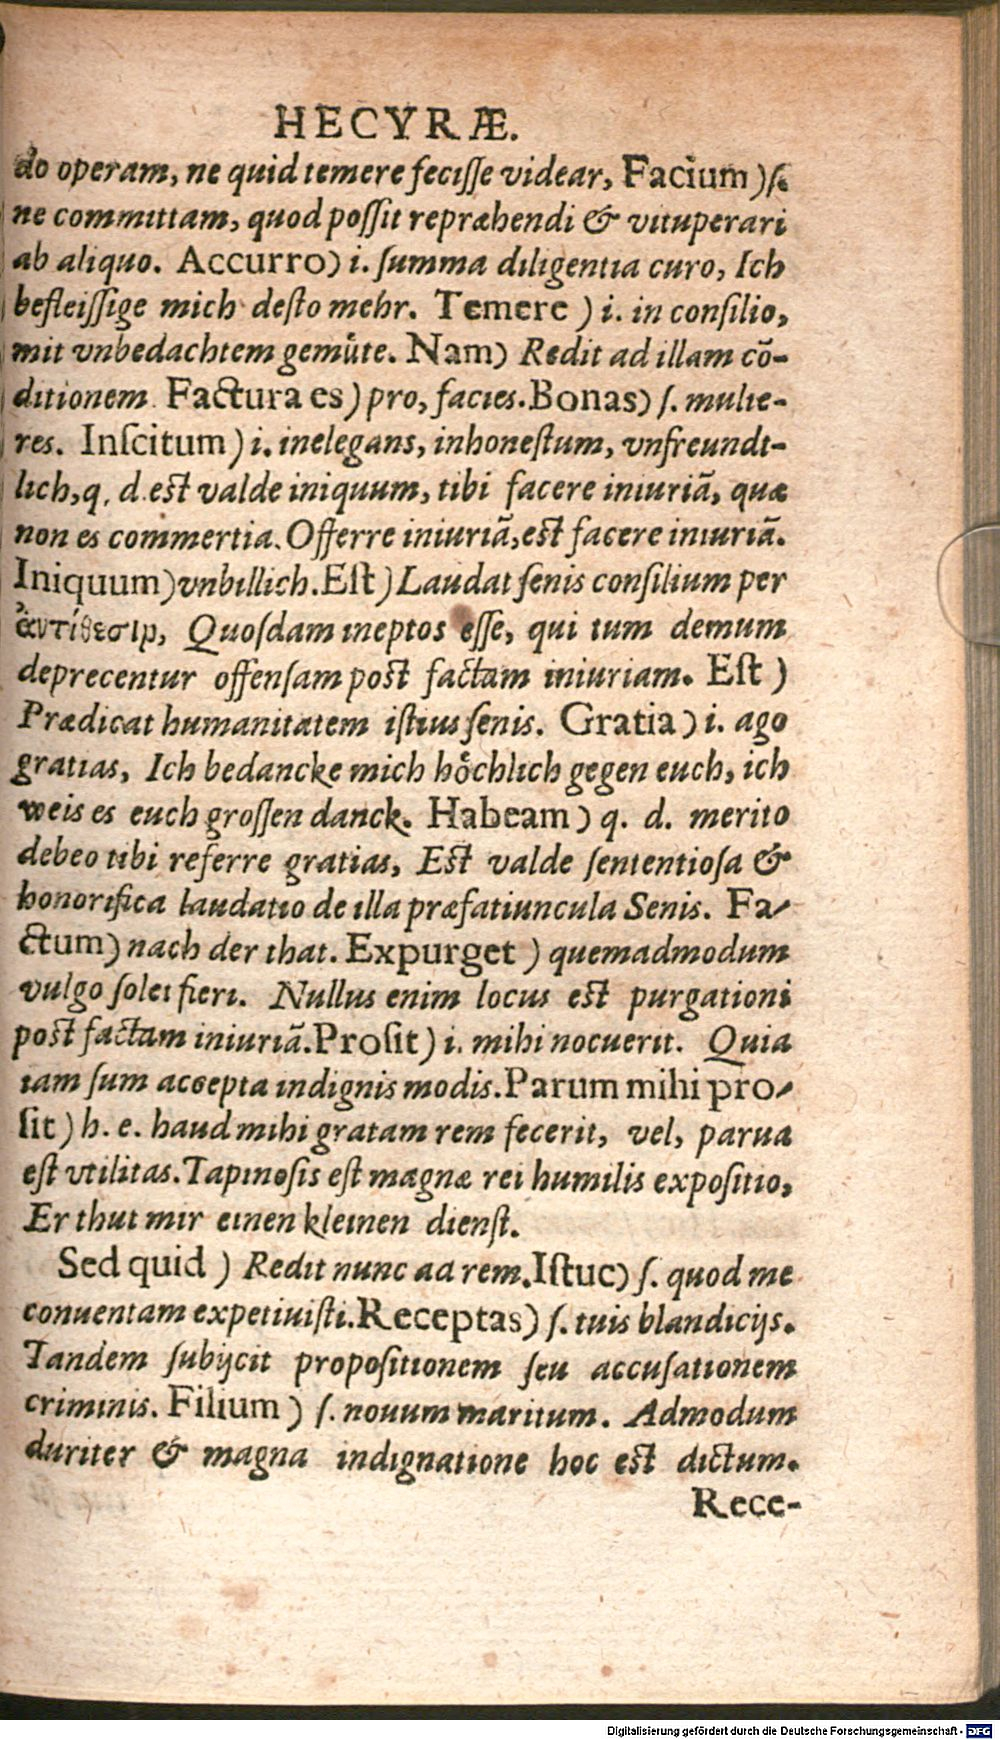 HECYRÆ.
do operam, ne quid temere feciſſe videar, Facium) ſ.
ne committam, quod poſſit repræhendi & vituperari
ab aliquo. Accurro) i. ſumma diligentia curo, Ich
befleiſſige mich deſto mehr. Temere) i. in conſilio,
mit vnbedachtem gemůte. Nam) Redit ad illam cō-
ditionem. Factura es) pro, facies. Bonas) ſ. mulie-
res. Inſcitum) i. inelegans, inhoneſtum, vnfreundt-
lich, q. d. eſt valde iniquum, tibi facere iniuriā, quæ
non es commertia. Offerre iniuriā, eſt facere iniuriā.
Iniquum) vnbillich. Eſt) Laudat ſenis conſilium per
ἀντίθεσιν, Quoſdam ineptos eſſe, qui tum demum
deprecentur offenſam poſt factam iniuriam. Eſt)
Prædicat humanitatem iſtius ſenis. Gratia) i. ago
gratias, Ich bedancke mich hoͤchlich gegen euch, ich
weis es euch groſſen danck. Habeam) q. d. merito
debeo tibi referre gratias, Eſt valde ſententioſa &
honorifica laudatio de illa præfatiuncula Senis. Fa-
ctum) nach der that. Expurget) quemadmodum
vulgo ſolet fieri. Nullus enim locus eſt purgationi
poſt factam iniuriā. Proſit) i. mihi nocuerit. Quia
iam ſum accepta indignis modis. Parum mihi pro-
ſit) h. e. haud mihi gratam rem fecerit, vel, parua
eſt vtilitas. Tapinoſis eſt magnæ rei humilis expoſitio,
Er thut mir einen kleinen dienſt.
Sed quid) Redit nunc ad rem. Iſtuc) ſ. quod me
conuentam expetiuiſti. Receptas) ſ. tuis blandicijs.
Tandem ſubijcit propoſitionem ſeu accuſationem
criminis. Filium) ſ. nouum maritum. Admodum
duriter & magna indignatione hoc eſt dictum.
Rece-
Digitalisierung gefördert durch die Deutsche Forschungsgemeinschaft - DFG